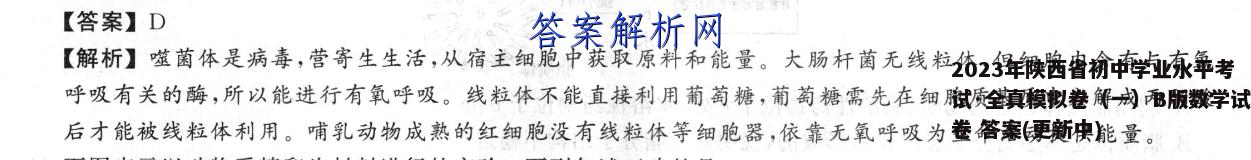 【答案】D
答案解析网
【解析】噬菌体是病毒,营寄生生活,从宿主细胞中获取原料和能量。大肠杆菌无线粒体,但细胞内含有与有氧
呼吸有关的酶,所以能进行有氧呼吸。线粒体不能直接利用葡萄糖,葡萄糖需先在细胞
后才能被线粒体利用。哺乳动物成熟的红细胞没有线粒体等细胞器,依靠无氧呼吸为生命活动提供能量。
2023年陕西省初中学业水平考
试·全真模拟卷(一)B版数学试
卷 答案(更新中)